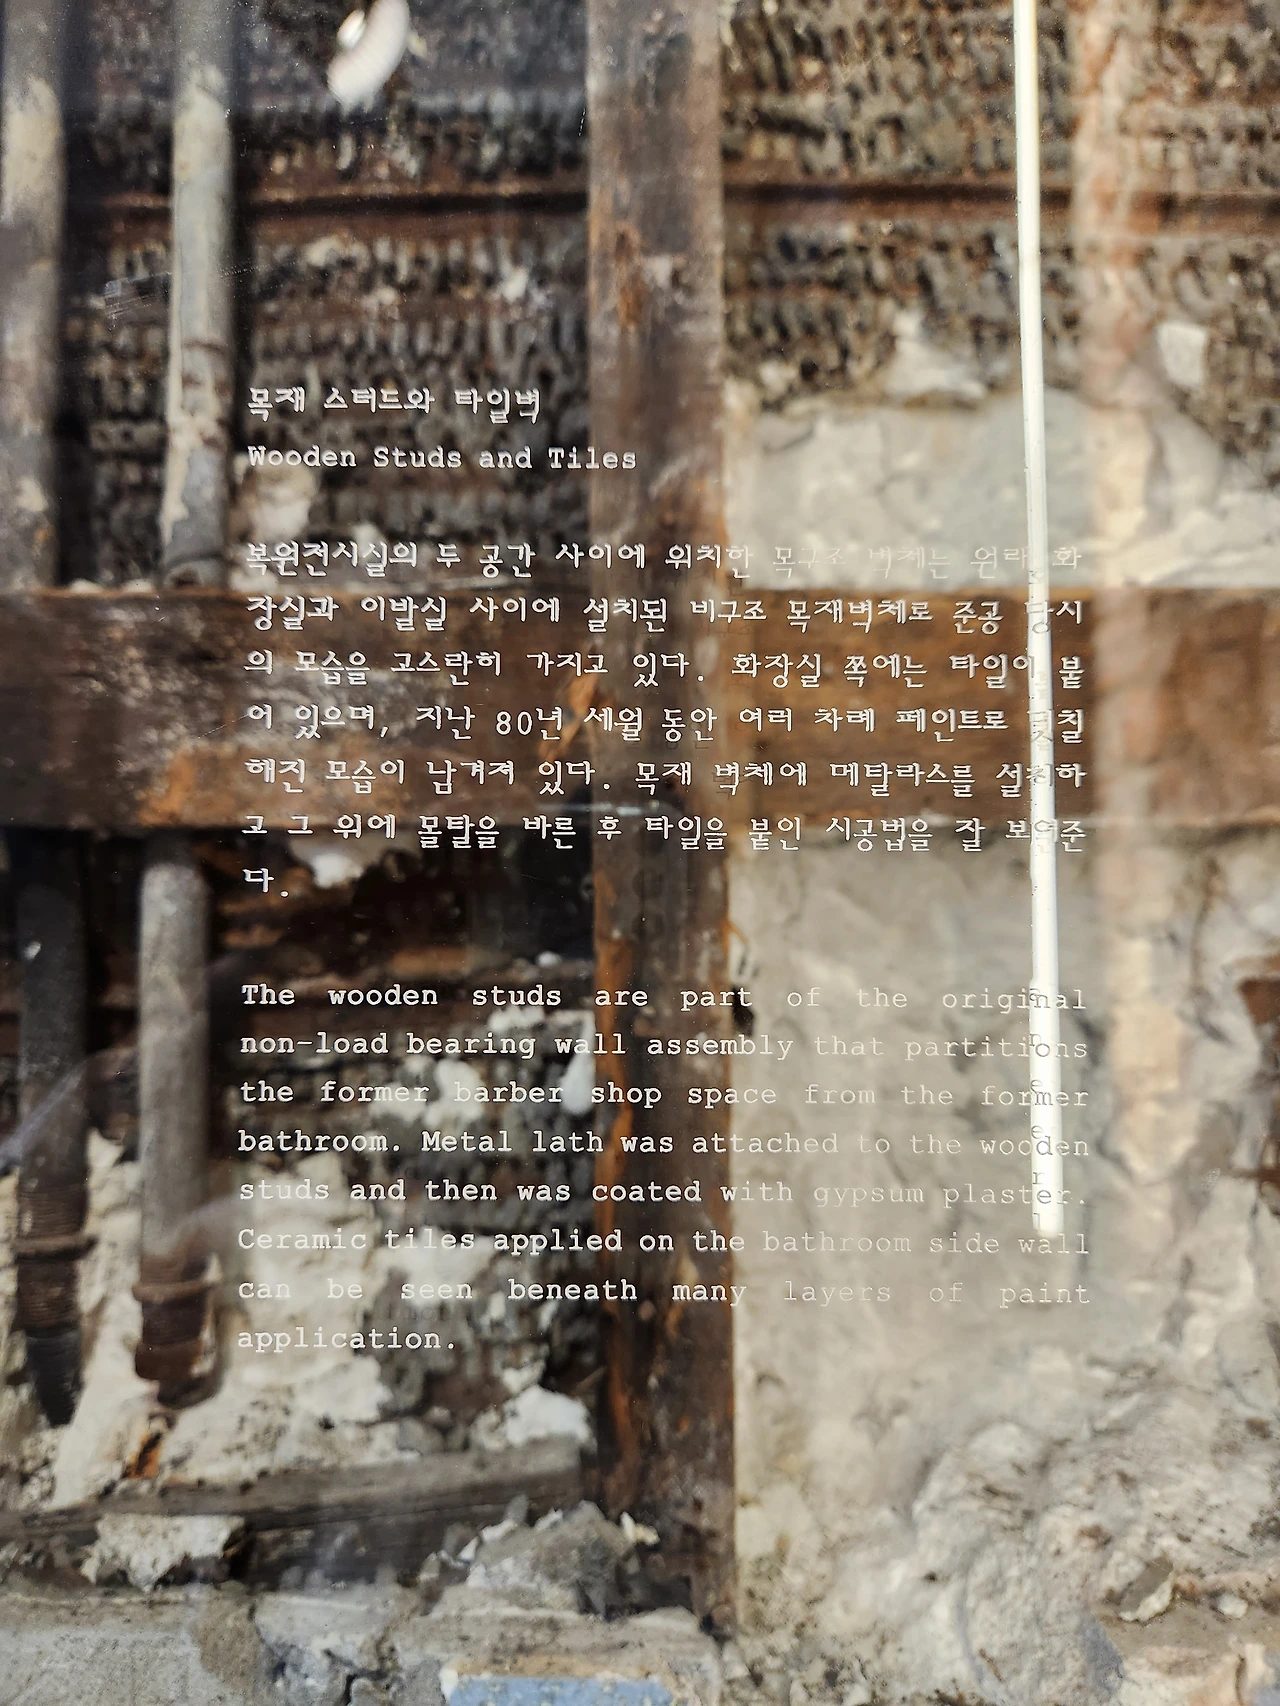 목재 스터드와 타일벽
Wooden Studs and Tiles
복원전시실의 두 공간 사이에 위치한 목구조 벽체는 원래 화
장실과 이발실 사이에 설치된 비구조 목재벽체로 준공 당시
의 모습을 고스란히 가지고 있다. 화장실 쪽에는 타일이 붙
어 있으며, 지난 80년 세월 동안 여러 차례 페인트로 덧칠
해진 모습이 남겨져 있다. 목재 벽체에 메탈라스를 설치하
고 그 위에 몰탈을 바른 후 타일을 붙인 시공법을 잘 보여준
다.
The wooden studs are part of the original
non-load bearing wall assembly that partitions
the former barber shop space from the former
bathroom. Metal lath was attached to the wooden
studs and then was coated with gypsum plaster.
Ceramic tiles applied on the bathroom side wall
can be seen beneath many layers of paint
application.